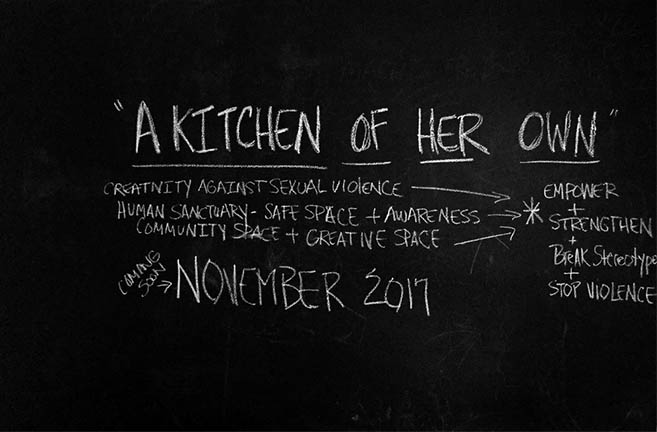 "A KITCHEN OF HER OWN"
CREATIVITY AGAINST SEXUAL VIOLENCE →
HUMAN SANCTUARY - SAFE SPACE + AWARENESS → *
COMMUNITY SPACE + CREATIVE SPACE →
EMPOWER
+
STRENGTHEN
+
BREAK Stereotype
+
STOP VIOLENCE
COMING
SOON → NOVEMBER 2017